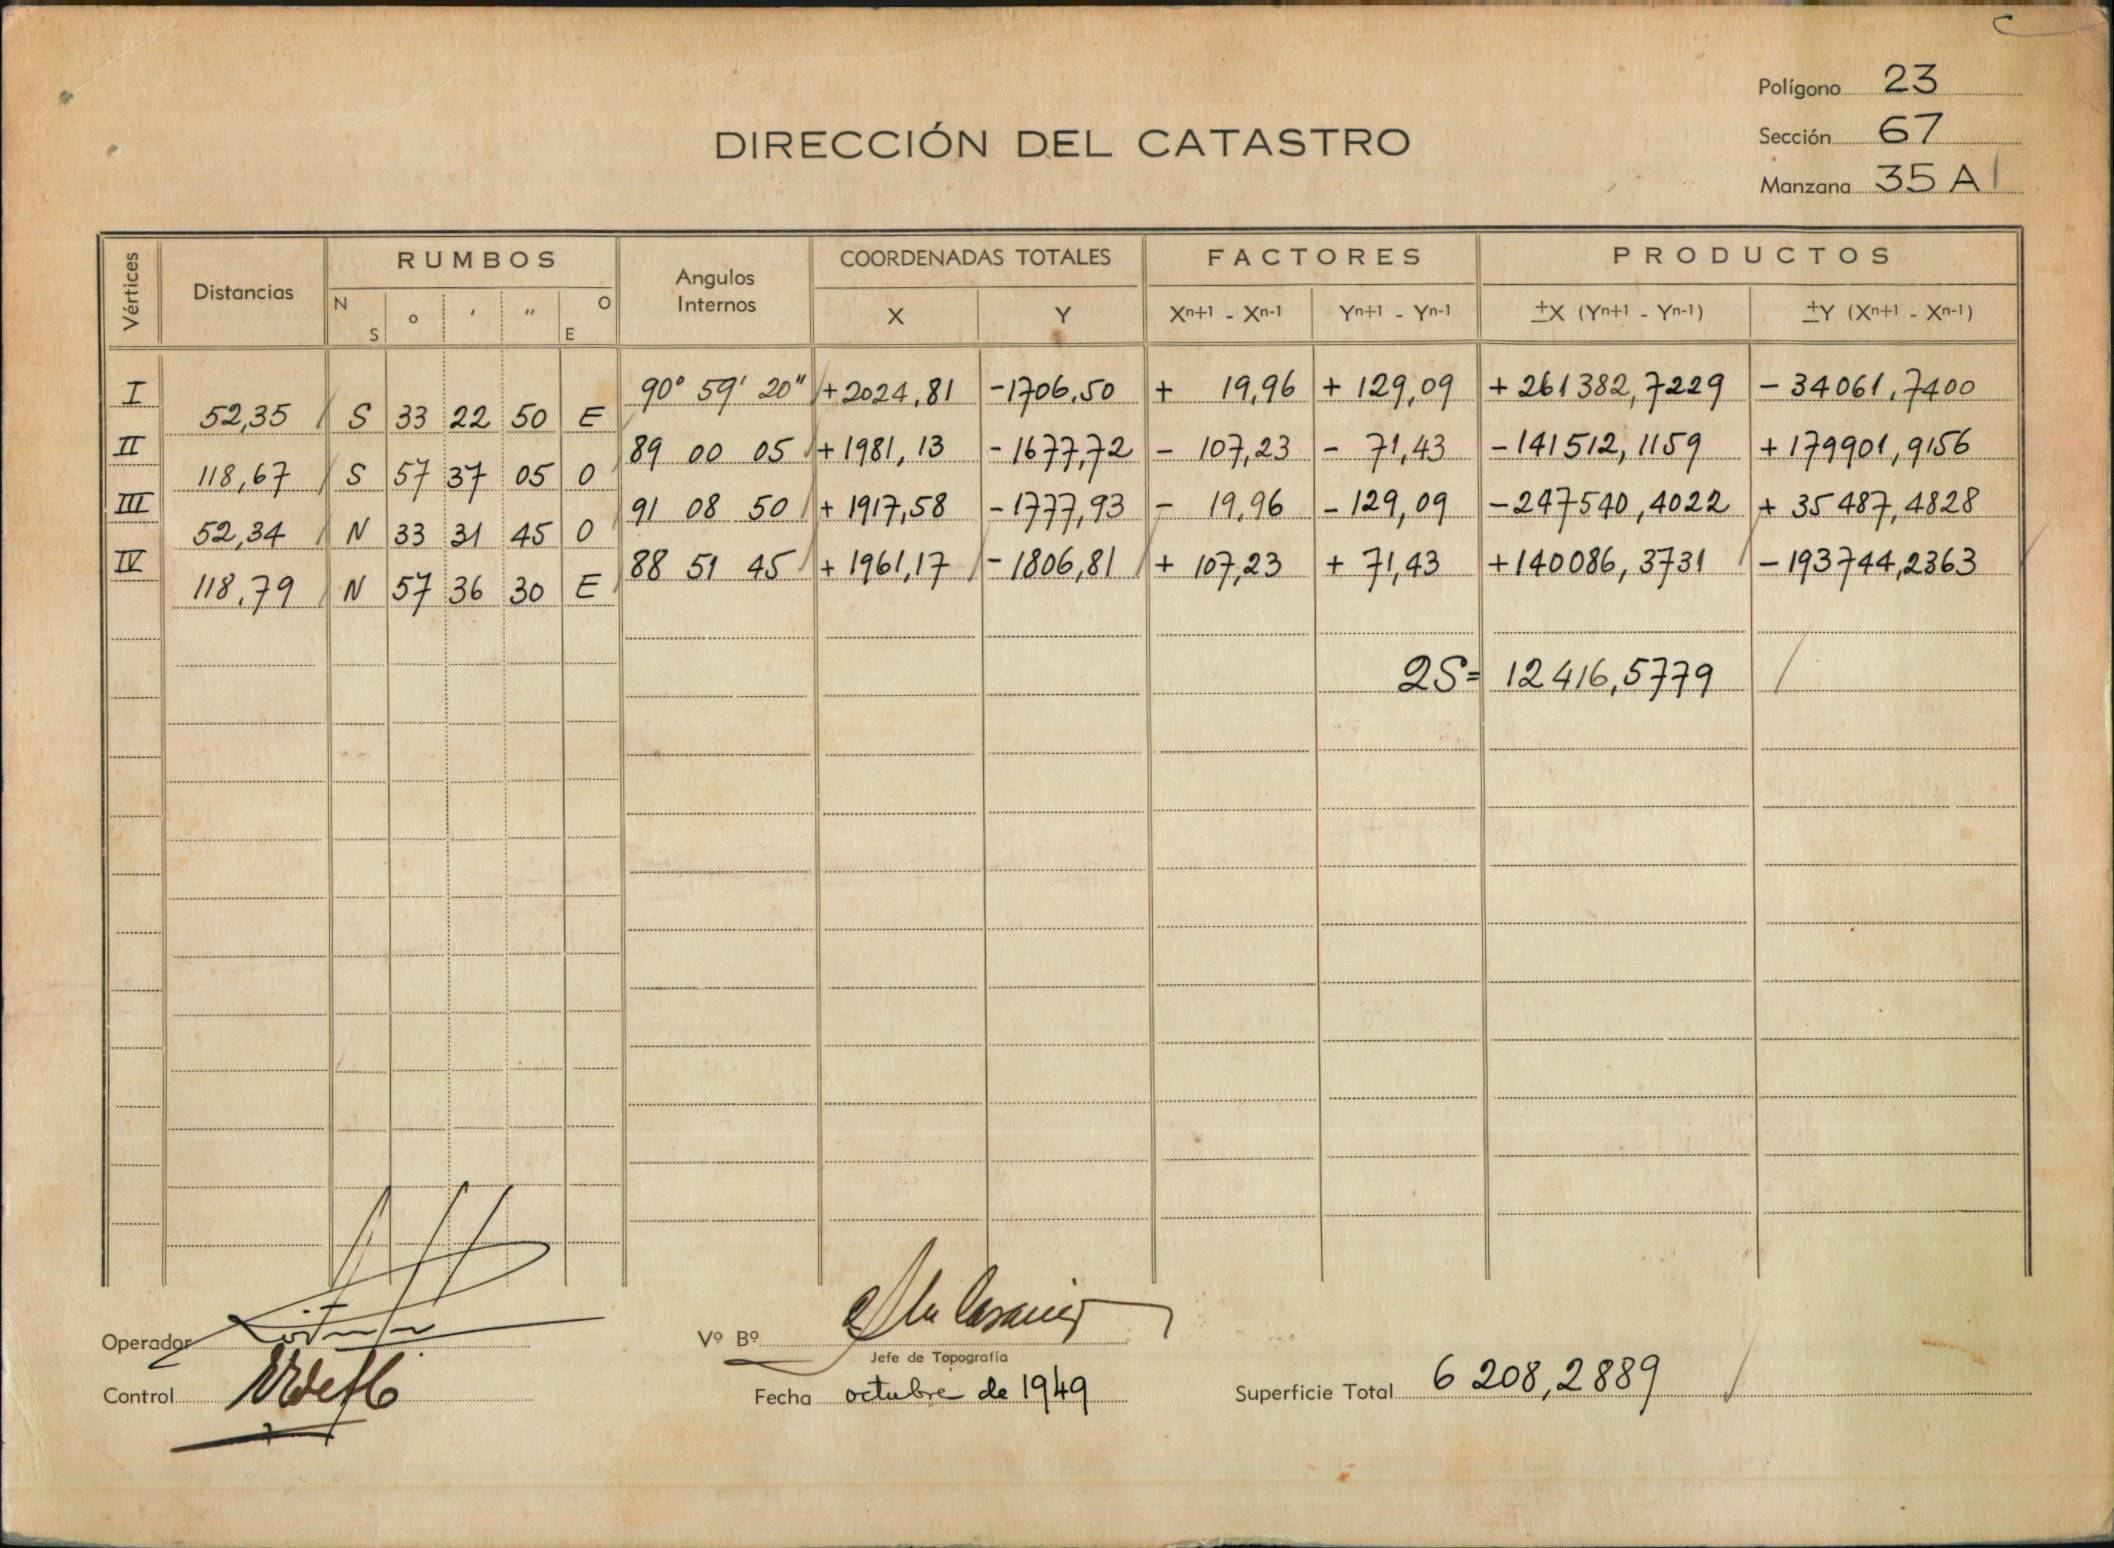 Polígono 23
DIRECCIÓN DEL CATASTRO
Sección 67
Manzana 35 A
Vértices Distancias RUMBOS Angulos Internos COORDENADAS TOTALES FACTORES PRODUCTOS
N S ° ' " O E X Y Xn+1 - Xn-1 Yn+1 - Yn-1 ±X (Yn+1 - Yn-1) ±Y (Xn+1 - Xn-1)
I 90° 59' 20" +2024,81 -1706,50 + 19,96 + 129,09 +261382,7229 - 34061,7400
52,35 S 33 22 50 E
II 89 00 05 +1981,13 -1677,72 - 107,23 - 71,43 -141512,1159 +179901,9156
118,67 S 57 37 05 O
III 91 08 50 +1917,58 -1777,93 - 19,96 -129,09 -247540,4022 + 35487,4828
52,34 N 33 31 45 O
IV 88 51 45 +1961,17 -1806,81 + 107,23 + 71,43 +140086,3731 -193744,2363
118,79 N 57 36 30 E
2S= 12416,5779
Operador
Vº Bº
Jefe de Topografía
Control
Fecha octubre de 1949
Superficie Total 6 208,2889